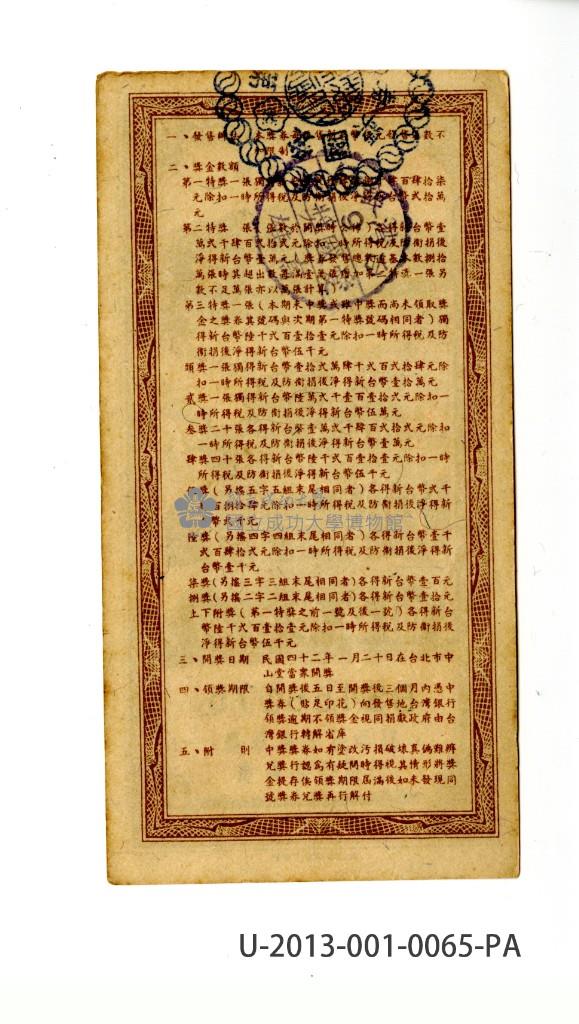 二、獎金數額
第一特獎一張獨
元除扣一時所得稅及防衛捐後淨得新台幣 拾萬
元
第二特獎
萬張時其超出數每滿壹萬張增加第二特獎一張另
數不足萬張亦以萬張計算
第三特獎一張(本期未中獎或雖中獎而尚未領取獎
金之獎券其號碼與次期第一特獎號碼相同者)獨
得新台幣陸千弍百壹拾壹元除扣一時所得稅及防
衞捐後淨得新台幣伍千元
頭獎一張獨得新台幣壹拾弍萬肆千弍百弍拾肆元除
扣一時所得稅及防衞捐後淨得新台幣壹拾萬元
貳獎一張獨得新台幣陸萬弍千壹百壹拾弍元除扣一
時所得稅及防衞捐後淨得新台幣伍萬元
叁獎二十張各得新台幣壹萬弍千肆百弍拾弍元除扣
一時所得稅及防衞捐後淨得新台幣壹萬元
肆獎四十張各得新台幣陸千弍百壹拾壹元除扣一時
所得稅及防衞捐後淨得新台幣伍千元
伍獎(另搖五字五組末尾相同者)各得新台幣弍千
肆百捌拾 元除扣一時所得稅及防衞捐後淨得新
台幣弍千元
國立成功大學博物館
陸獎(另搖四字四組末尾相同者)各得新台幣壹千
弍百肆拾弍元除扣一時所得稅及防衞捐後淨得新
台幣壹千元
柒獎(另搖三字三組末尾相同者)各得新台幣壹百元
捌獎(另搖二字二組末尾相同者)各得新台幣壹拾元
上下附獎(第一特獎之前一號及後一號)各得新台
幣陸千弍百壹拾壹元除扣一時所得稅及防衞捐後
淨得新台幣伍千元
三、開獎日期 民國四十二年一月二十日在台北市中
山堂當衆開獎
四、領獎期限 自開獎後五日至開獎後三個月內憑中
獎券(貼足印花)向發售地台灣銀行
領獎逾期不領獎金視同捐獻政府由台
灣銀行轉解省庫
五、附則 中獎獎券如有塗改污損破壞真偽難辨
兌獎行認爲有疑問時得視其情形將獎
金提存俟領獎期限屆滿後如未發現同
號獎券兌獎再行解付
U-2013-001-0065-PA